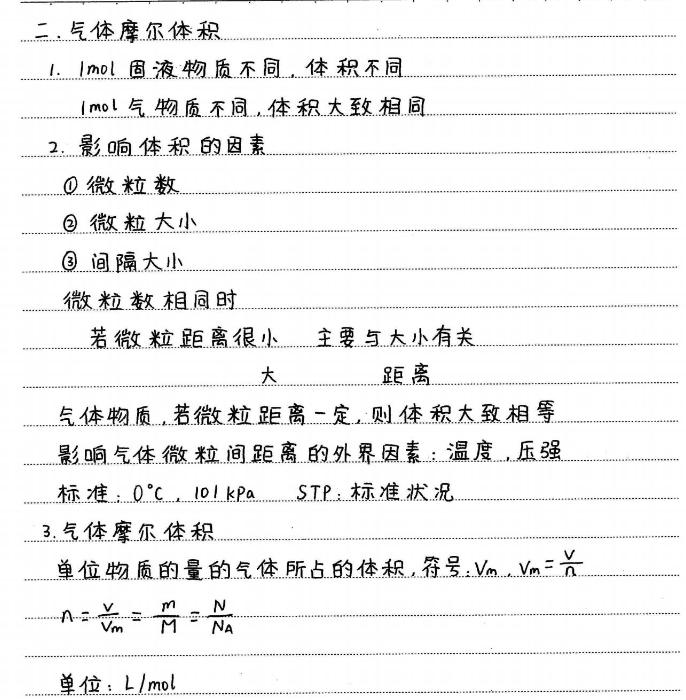 二.气体摩尔体积
1. 1mol 固液物质不同,体积不同
1mol 气物质不同,体积大致相同
2. 影响体积的因素
① 微粒数
② 微粒大小
③ 间隔大小
微粒数相同时
若微粒距离很小 主要与大小有关
大 距离
气体物质,若微粒距离一定,则体积大致相等
影响气体微粒间距离的外界因素:温度,压强
标准:0°C,101kPa STP:标准状况
3.气体摩尔体积
单位物质的量的气体所占的体积,符号:Vm,Vm=V/n
n=V/Vm=m/M=N/NA
单位:L/mol